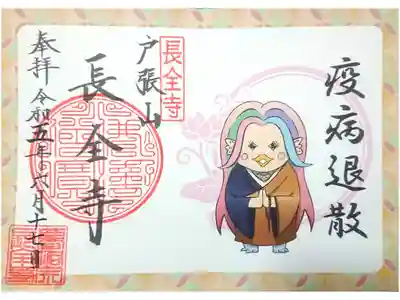 疫病退散
長全寺
戸張山
長全寺
奉拝
令和五年六月十七日